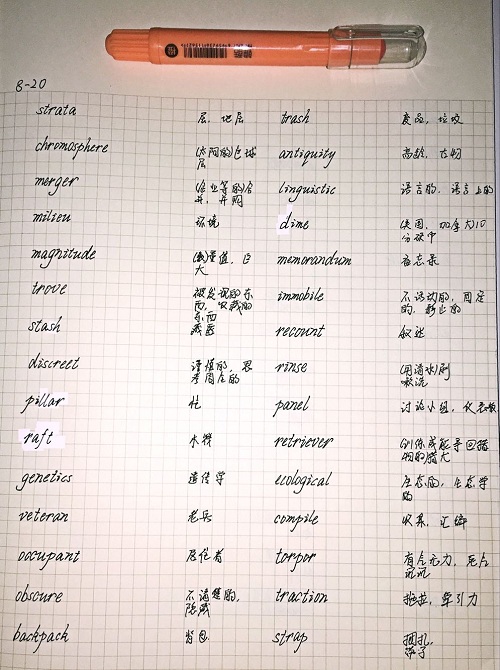 8-20
strata 层、地层 trash 废品，垃圾
chromosphere (太阳的)色球层 antiquity 高龄，古物
merger (企业等的)合并，并购 linguistic 语言的，语言上的
milieu 环境 dime 美国，加拿大10分硬币
magnitude 量值，巨大 memorandum 备忘录
trove 被发现的东西，收藏的东西 immobile 不活动的，固定的，静止的
stash 藏匿 recount 叙述
discreet 谨慎的，思考周全的 rinse (用清水)刷 漱洗
pillar 柱 panel 讨论小组，仪表板
raft 木栰 retriever 训练成能寻回猎物的猎犬
genetics 遗传学 ecological 生态的，生态学的
veteran 老兵 compile 收集，汇编
occupant 居住者 torpor 有气无力，死气沉沉
obscure 不清楚的，隐藏 traction 拖拉，牵引力
backpack 背包 strap 捆扎，带子